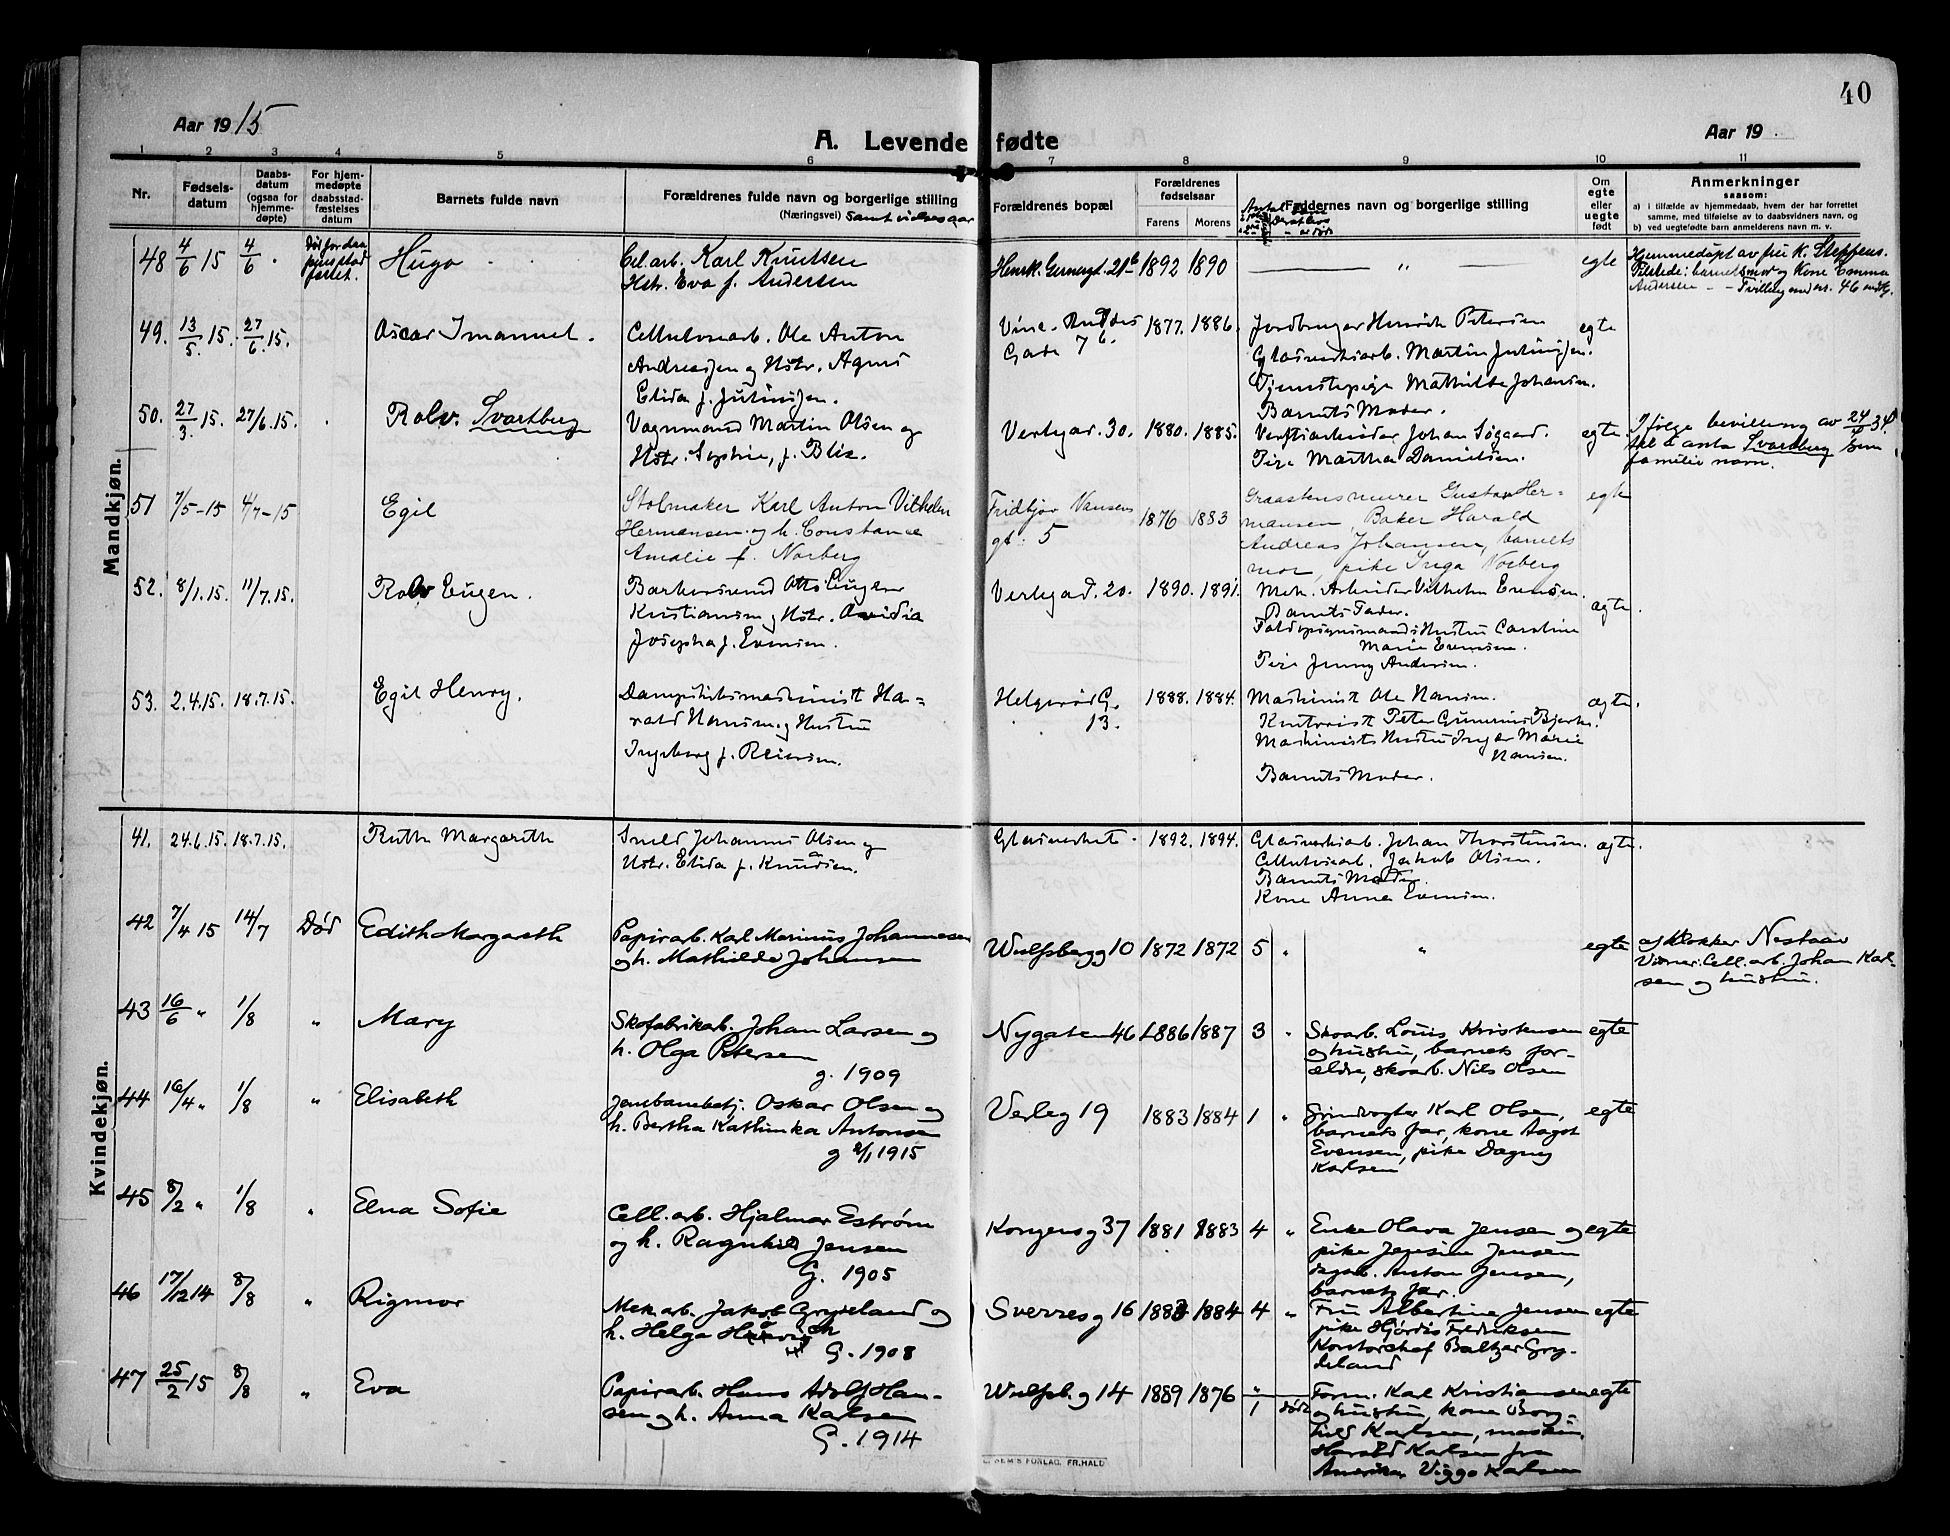 40
Aar 1915
A. Levende fødte
Aar 19
1 2 3 4 5 6 7 8 9 10 11
Nr.
Fødsels-
datum
Daabs-
datum
(ogsaa for
hjemme-
døpte)
For hjem-
medøpte
daabsstad-
fæstelses
datum
Barnets fulde navn
Forældrenes fulde navn og borgerlige stilling
(Næringsvei) samt vielsesaar
Forældrenes bopæl
Forældrenes
fødselsaar
Farens Morens
Faddernes navn og borgerlige stilling
Om
egte
eller
uegte
født
Anmerkninger
saasom:
a) i tilfælde av hjemmedaab, hvem der har forrettet
samme, med tilføielse av to daabsvidners navn, og
b) ved uegtefødte barn anmelderens navn m. v.
Mandkjøn.
48 4/6 15 4/6 Død før daa
pens stad
fæstet. Hugo Cel.arb. Karl Knutsen
Hstr. Eva f. Andersen
Henrik Gernergt. 21b 1892 1890 — „ — egte
Hjemmedøpt av fru K. Steffens.
Tilstede: barnets mor og kone Emma
Andersen - - Tvilling med nr. 46
49. 13/5. 15. 27/6. 15. Oscar Imanuel. Cellulosearb. Ole Anton
Andreassen og Hstr. Agnes
Elida f. Juliussen.
Vine-
Gade 7b. 1877. 1886. Jordbruger Henrik Petersen
Glasverksarb. Martin Juliussen.
Tjenestepige Mathilde Johansen.
Barnets Moder. egte
50. 27/3. 15. 27/6. 15. Rolv. Svartberg Vognmand Martin Olsen og
Hstr. Sophie, f. Blix.
Verlegar. 30. 1880. 1885. Verftsarbeider Johan Søgaard.
Pige Martha Danielsen. egte.
Ifølge bevilling av 24/4 34
skal anta Svartberg som
familienavn.
51 7/5-15 4/7-15 Egil Stolmaker Karl Anton Vilhelm
Hermansen og h. Constance
Amalie f. Norberg
Fridtjov Nansens
gt: 5 1876 1883 Graastensmurer Gustav Her-
mansen, Baker Harald
Andreas Johansen, barnets
mor, pike Inga Norberg egte
52. 8/1. 15. 11/7. 15. Rolv Eugen. Otto Eugen
Kristiansen og Hstr. Ovidia
Josepha f. Evensen.
Verlegad. 20. 1890. 1891. Mek. Arbeider Vilhelm Evensen.
Barnets Fader.
Hustru Caroline
Marie Evensen.
Pige Jenny Andersen. ægte.
53. 2.4.15. 18.7.15. Egil Henry. Dampskibsmaskinist Ha-
rald Hansen og Hustru
Ingeborg f. Reiersen.
Helgerød G.
13. 1888. 1884. Maskinist Ole Hansen.
Kontorist Peter Gunerius Bjerke.
Maskinists Hustru Inga Marie
Hansen.
Barnets Moder. ægte.
Kvindekjøn.
41. 24.6.15. 18.7.15. Ruth Margareth Smed Johannes Olsen og
Hstr. Elida f. Knudsen.
Glasverket. 1892. 1894. Glasverksarb. Johan Thorstensen.
Cellulosearb. Jakob Olsen.
Barnets Moder
Kone Anna Evensen. ægte.
42 7/4 15 14/7 Død Edith Margareth Papirarb. Karl Marinus Johannesen
og h. Mathilde Johansen
Wulfsbergg 10 1872 1872 5 „ „ egte
af Klokker Nestaas
Vidner: Cell. arb. Johan Karl-
sen og hustru.
43 16/6 „ 1/8 „ Mary Skofabrikarb. Johan Larsen og
h. Olga Petersen
g. 1909
Nygaten 46 1886 1887 3 „ Skoarb. Louis Kristensen
og hustru, barnets for-
ældre, skoarb. Nils Olsen egte
44 16/4 „ 1/8 „ Elisabeth Jernbanebetj. Oskar Olsen og
h. Bertha Kathinka Antonsen
g 2/1 1915
Verleg 19 1883 1884 1 „ Grindvogter Karl Olsen,
barnets far, kone Aagot
Evensen, pike Dagny
Karlsen egte
45 8/2 „ 1/8 „ Elna Sofie Cell. arb. Hjalmar Estrøm
og h. Ragnhild Jensen
G. 1905
Kongensg 37 1881 1883 4 „ Enke Olava Jensen og
pike Jensine Jensen
dagsl. Anton Jensen,
barnets far. egte
46 17/12 14 8/8 „ Rigmor Mek arb. Jakob Grydeland og
h. Helga
G. 1908
Sverresg 16 1883 1884 4 „ Fru Albertine Jensen
pike Hjørdis Fredriksen
Kontorchef Baltzer Gry-
deland egte
47 25/2 15 8/8 „ Eva Papirarb. Hans Adolf Han-
sen og h. Anna Karlsen
G. 1914
Wulfsb.g 14 1889 1876 „ 1 døde Form. Karl Kristiansen
og hustru, kone Borg-
hild Karlsen, maskin.
Harald Karlsen fra
Amerika, Viggo Karlsen egte
SEM'S FORLAG. FR.HALD